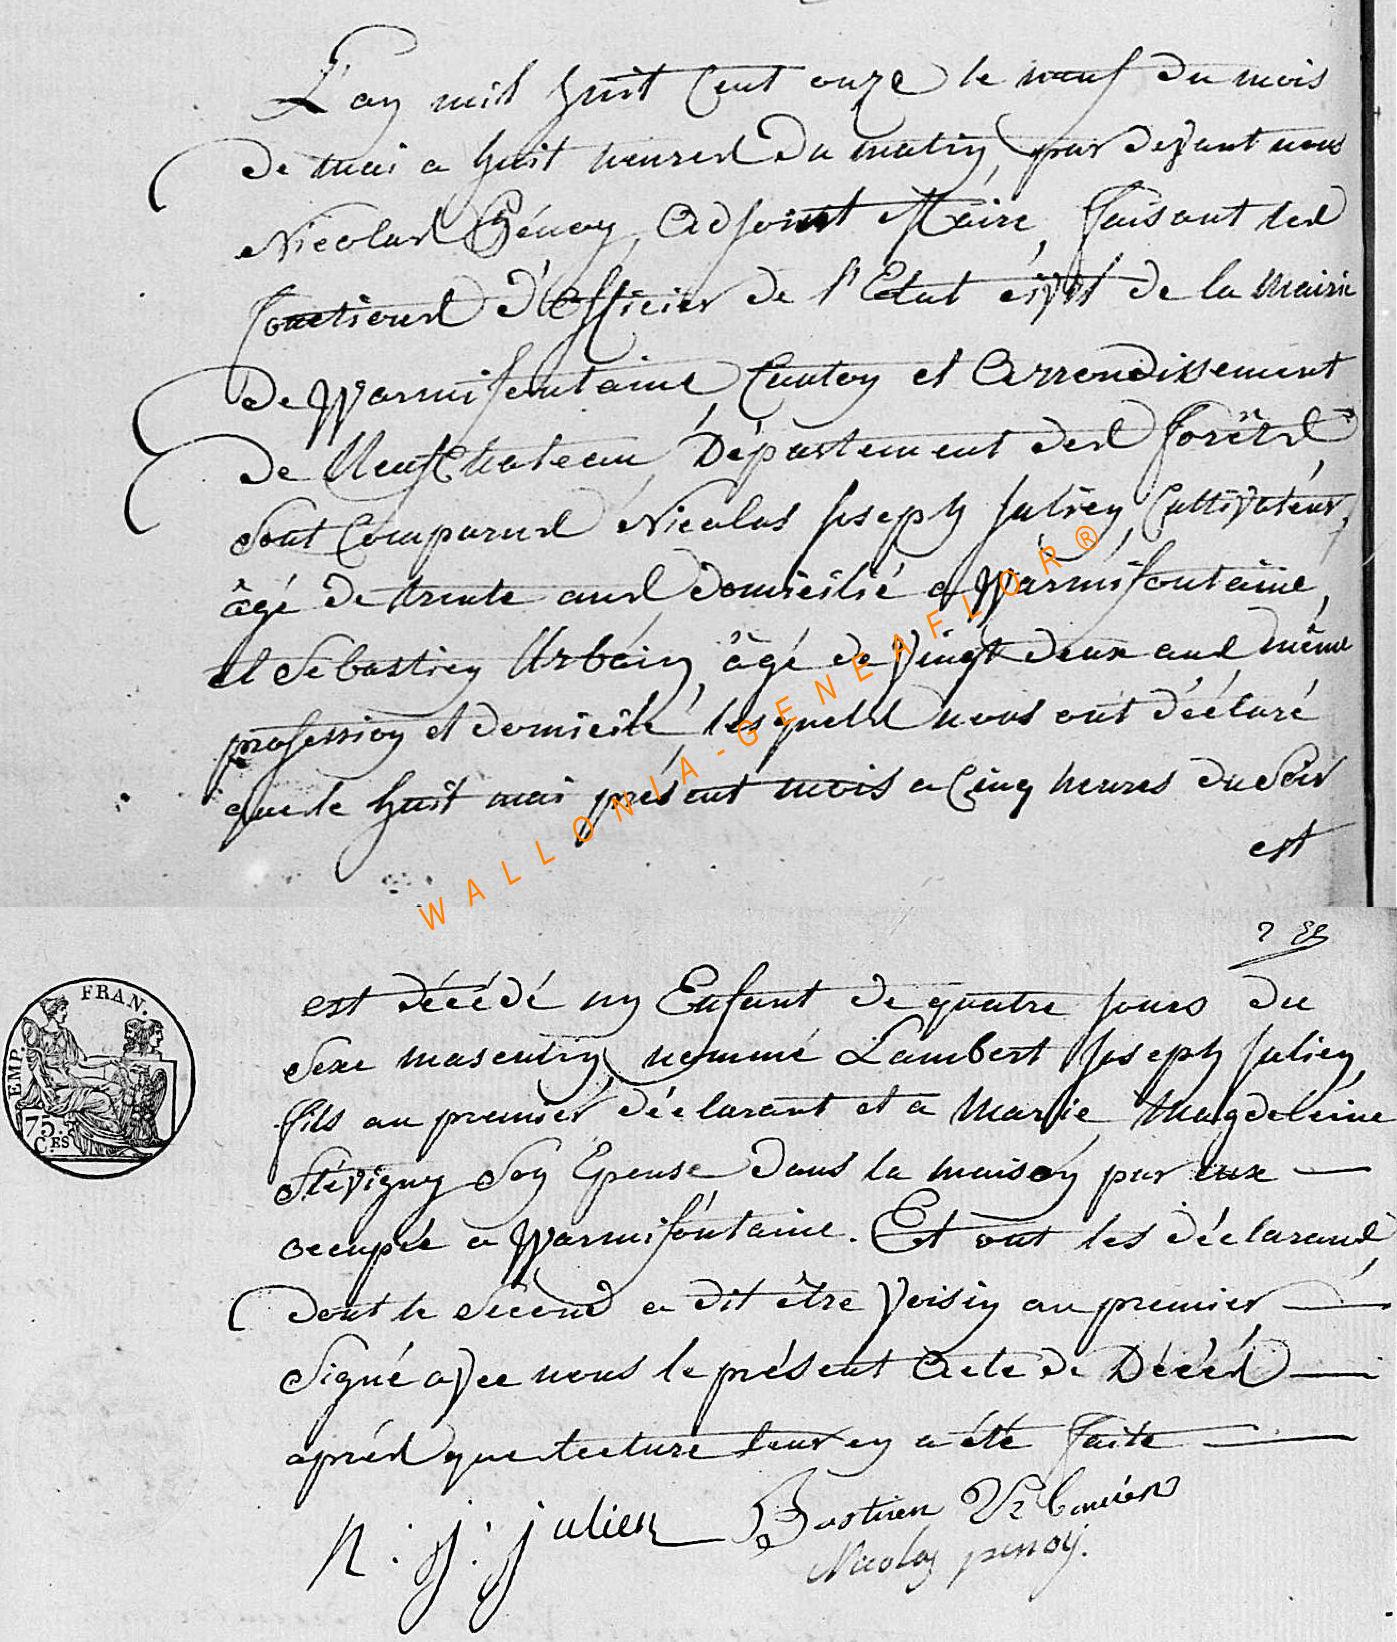 L'an mil huit Cent onze le neuf du mois
de mai a huit heures du matin, par devant nous
Nicolas Pénoy, Adjoint Maire, faisant les
fonctions d'Officier de l'Etat civil de la Mairie
de Warmifontaine Canton et Arrondissement
de Neufchateau, Département des forêts,
Sont Comparus Nicolas Joseph Julien, Cultivateur,
âgé de trente ans domicilié a Warmifontaine,
et Sebastien Urbain, âgé de vingt deux ans même
profession et domicile, lesquels nous ont déclaré
que le huit mai présent mois a Cinq heures du Soir
est
WALLONIA-GENEAFLOR®
est décédé un Enfant de quatre jours du
Sexe masculin, nommé Lambert Joseph Julien,
fils au premier déclarant et a Marie Magdeleine
Stévigny Son Epouse dans la maison par eux
occupée a Warmifontaine. Et ont les déclarans,
dont le Second a dit être Voisin au premier
Signé avec nous le présent Acte de Décès
après que lecture leur en a été faite
n. j. julien Bastien Urbain
Nicolas penoy.
EMP. FRAN.
75. C.ES